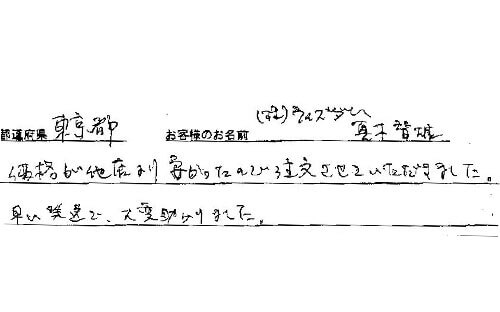 都道府県 東京都 お客様のお名前 (株)
価格が他店より安かったので注文させていただきました。
早い発送で、大変助かりました。